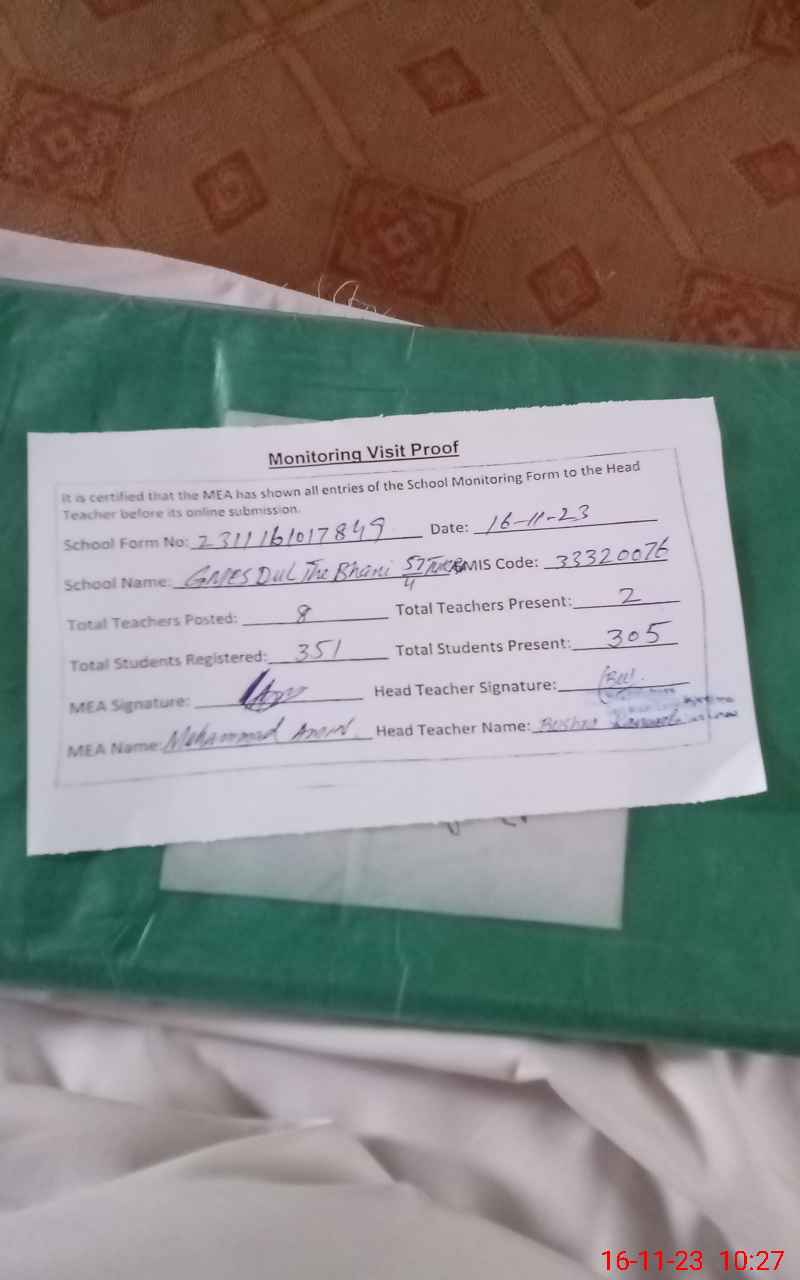 Monitoring Visit Proof
It is certified that the MEA has shown all entries of the School Monitoring Form to the Head
Teacher before its online submission.
School Form No: 2311161017849 Date: 16-11-23
School Name: GMES Dul The Bhani EMIS Code: 33320076
Total Teachers Posted: 8 Total Teachers Present: 2
Total Students Registered: 351 Total Students Present: 305
MEA Signature: Head Teacher Signature:
MEA Name: Mohammad Amin Head Teacher Name: Bushra
16-11-23 10:27